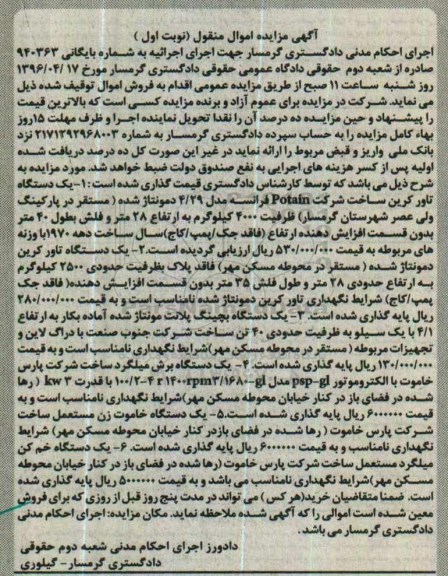 آگهی مزایده اموال منقول (نوبت اول )
اجرای احکام مدنی دادگستری گرمسار جهت اجرای اجرائیه به شماره بایگانی ۹۴۰۳۶۳
صادره از شعبه دوم حقوقی دادگاه عمومی حقوقی دادگستری گرمسار مورخ ۱۳۹۶/۰۴/۱۷
روز شنبه ساعت ۱۱ صبح از طریق مزایده عمومی اقدام به فروش اموال توقیف شده ذیل
می نماید. شرکت در مزایده برای عموم آزاد و برنده مزایده کسی است که بالاترین قیمت
را پیشنهاد و حین مزایده ده درصد آن را نقدا تحویل نماینده اجرا و ظرف مهلت ۱۵روز
بهاء کامل مزایده را به حساب سپرده دادگستری گرمسار به شماره ۲۱۷۱۲۹۲۹۶۸۰۰۳ نزد
بانک ملی واریز و قبض مربوط را ارائه نماید در غیر این صورت کل ده درصد دریافت شده
اولیه پس از کسر هزینه های اجرایی به نفع صندوق دولت ضبط خواهد شد. مورد مزایده به
شرح ذیل می باشد که توسط کارشناس دادگستری قیمت گذاری شده است:۱-یک دستگاه
تاور کرین ساخت شرکت Potain فرانسه مدل ۴/۲۹ دمونتاژ شده ( مستقر در پارکینگ
ولی عصر شهرستان گرمسار) ظرفیت ۴۰۰۰ کیلوگرم به ارتفاع ۲۸ متر و فلش بطول ۴۰ متر
بدون قسمت افزایش دهنده ارتفاع (فاقد جک/پمپ/کاج)سال ساخت دهه ۱۹۷۰با وزنه
های مربوطه به قیمت ۵۳۰/۰۰۰/۰۰۰ ریال ارزیابی گردیده است.۲- یک دستگاه تاور کرین
دمونتاژ شده ( مستقر در محوطه مسکن مهر) فاقد پلاک بظرفیت حدودی ۲۵۰۰ کیلوگرم
به ارتفاع حدودی ۲۸ متر و طول فلش ۳۵ متر بدون قسمت افزایش دهنده( فاقد جک
پمپ/کاج) شرایط نگهداری تاور کرین دمونتاژ شده نامناسب است و به قیمت ۲۸۰/۰۰۰/۰۰۰
ریال پایه گذاری شده است. ۳- یک دستگاه بچینگ پلانت مونتاژ شده آماده بکار به ارتفاع
۴/۱ با یک سیلو به ظرفیت حدودی ۴۰ تن ساخت شرکت جنوب صنعت با دراگ لاین و
تجهیزات مربوطه ( مستقر در محوطه مسکن مهر)شرایط نگهداری نامناسب است و به قیمت
۱۳۰/۰۰۰/۰۰۰ ریال پایه گذاری شده است. ۴- یک دستگاه برش میلگرد ساخت شرکت پارس
خاموت با الکتروموتور psp-gl مدل ۱۰۰/۲-۴ r ۱۴۰۰rpm۳/۱۶۸۰-gl با قدرت ۳ kw ( رها
شده در فضای باز در کنار خیابان محوطه مسکن مهر)شرایط نگهداری نامناسب است و به
قیمت ۶۰۰۰۰۰۰ ریال پایه گذاری شده است.۵- یک دستگاه خاموت زن مستعمل ساخت
شرکت پارس خاموت ( رها شده در فضای بازدر کنار خیابان محوطه مسکن مهر) شرایط
نگهداری نامناسب و به قیمت ۶۰۰۰۰۰۰ ریال پایه گذاری شده است. ۶- یک دستگاه خم کن
میلگرد مستعمل ساخت شرکت پارس خاموت (رها شده در فضای باز در کنار خیابان محوطه
مسکن مهر)شرایط نگهداری نامناسب می باشد و به قیمت ۵۰۰۰۰۰۰ ریال پایه گذاری شده
است. ضمنا متقاضیان خرید(هر کس ) می تواند در مدت پنج روز قبل از روزی که برای فروش
معین شده است اموالی را که آگهی شده ملاحظه نماید. مکان مزایده: اجرای احکام مدنی
دادگستری گرمسار می باشد .
دادورز اجرای احکام مدنی شعبه دوم حقوقی
دادگستری گرمسار - گیلوری